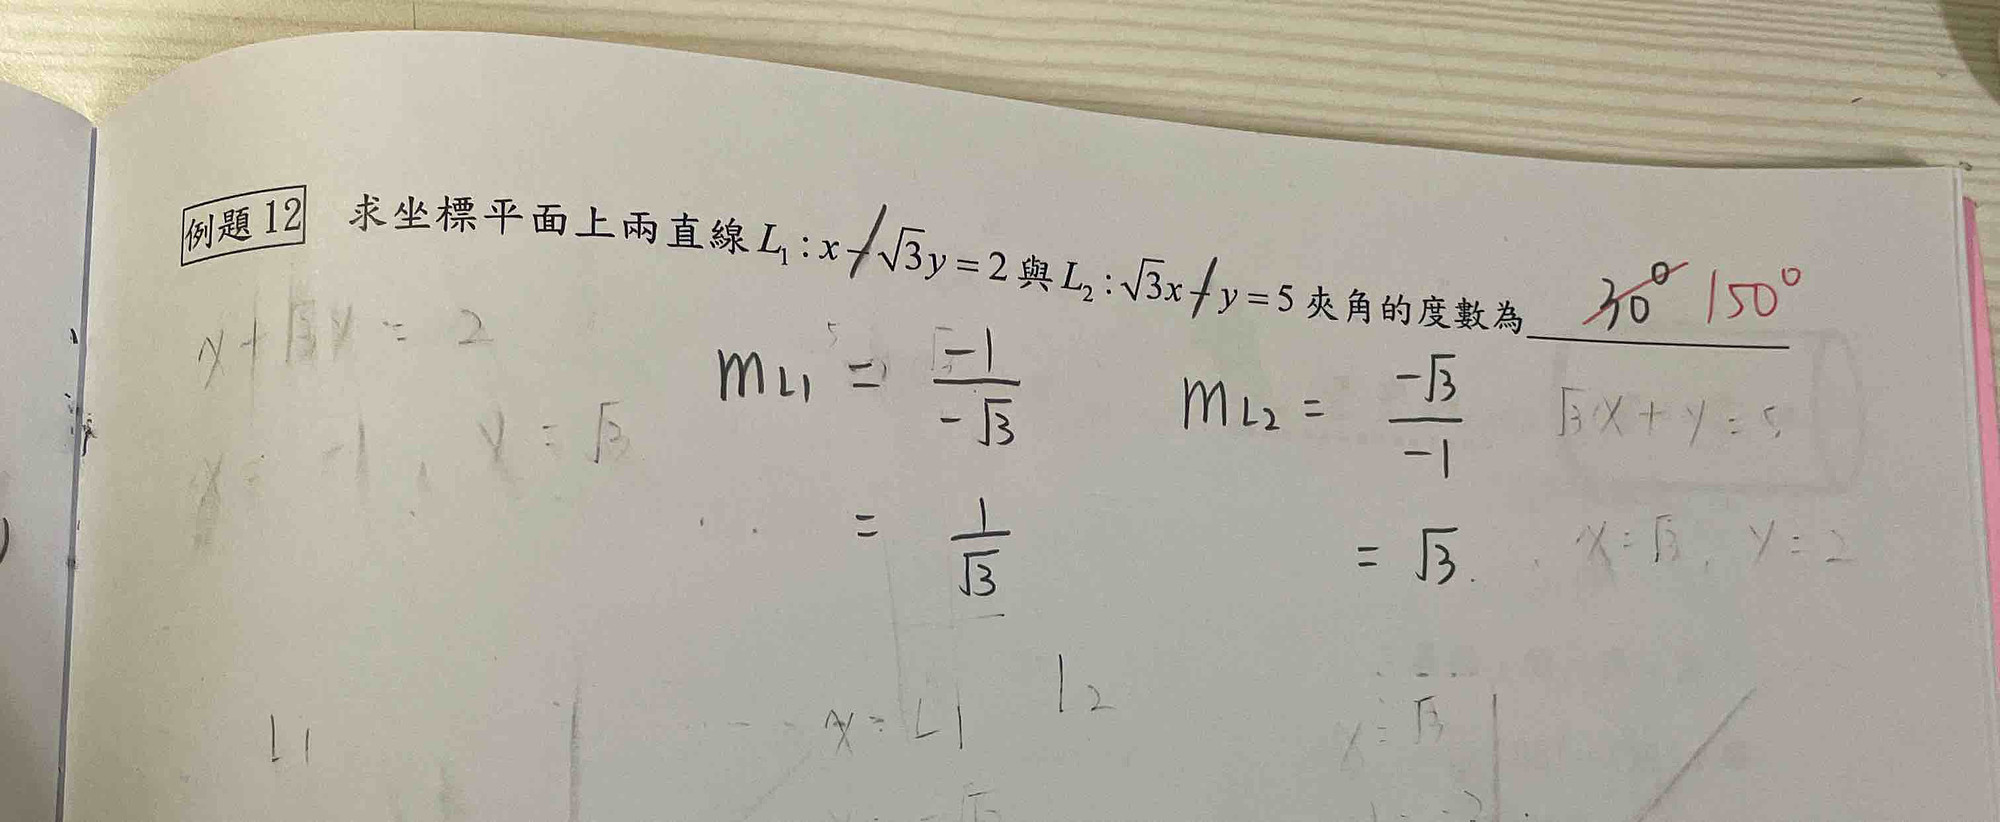 例題 12 求坐標平面上兩直線 L₁ : x - √3y = 2 與 L₂ : √3x - y = 5 夾角的度數為 30° 150°
x + √3y = 2
m L1 = -1/-√3
m L2 = -√3/-1
√3x + y = 5
x = -1, y = √3
= 1/√3
= √3
x = √3, y = 2
L1
x = L1
L2
x = √3